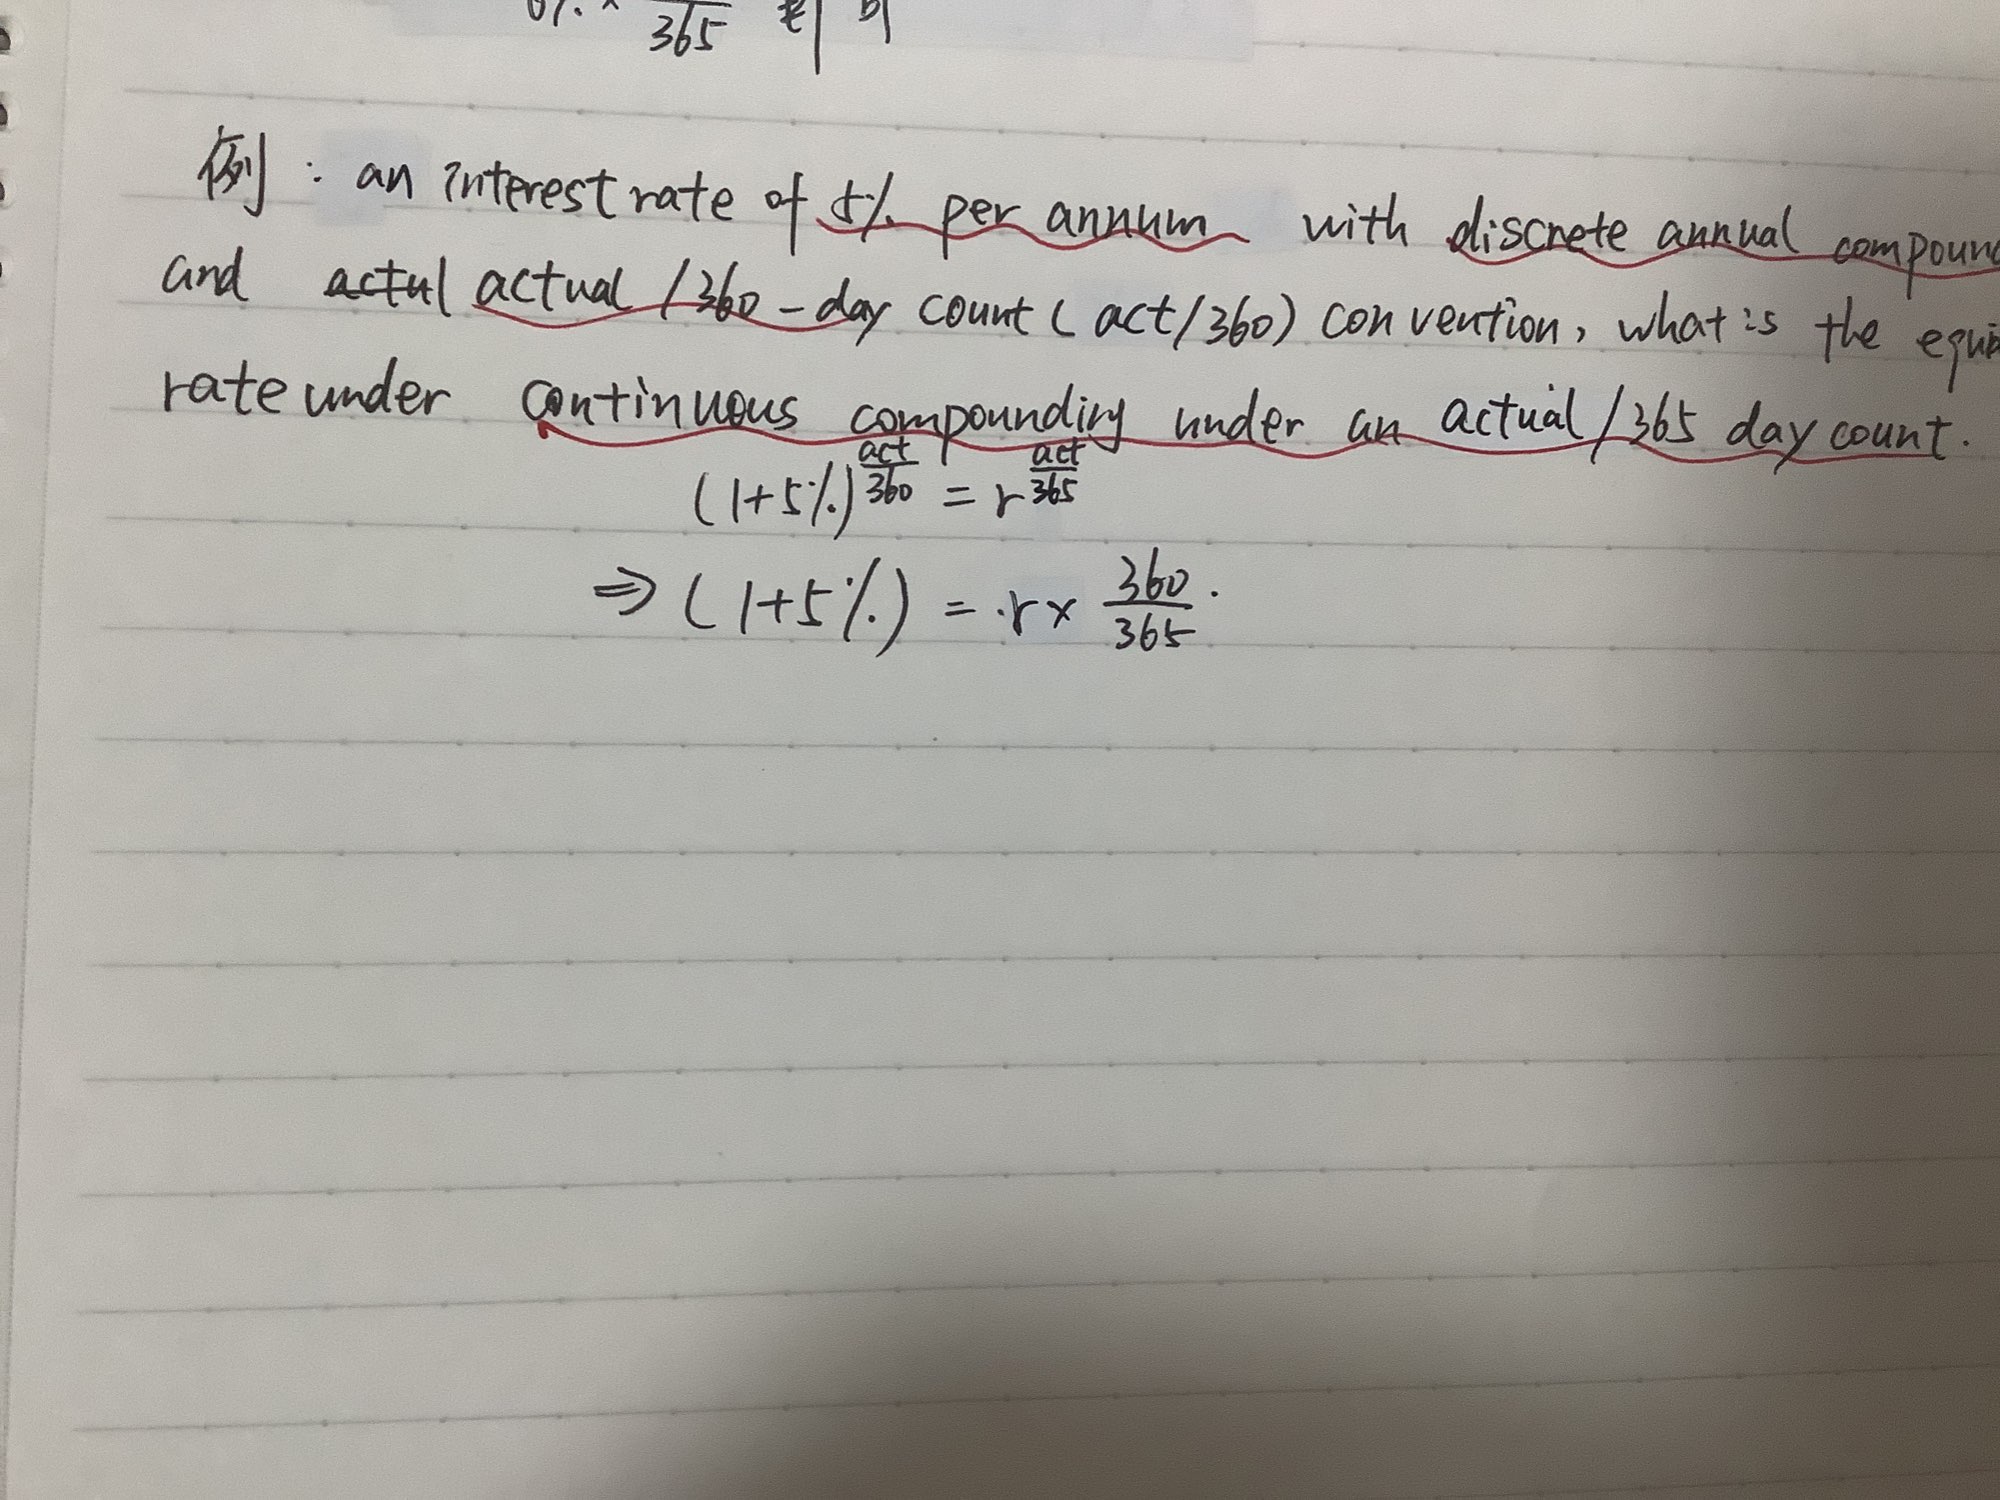 365
例：an interest rate of 5% per annum with discrete annual compoun
and actul actual /360-day count (act/360) convention, what is the equi
rate under continuous compounding under an actual/365 day count.
(1+5%)^(act/360) = r^(act/365)
⇒ (1+5%) = .r× 360/365.